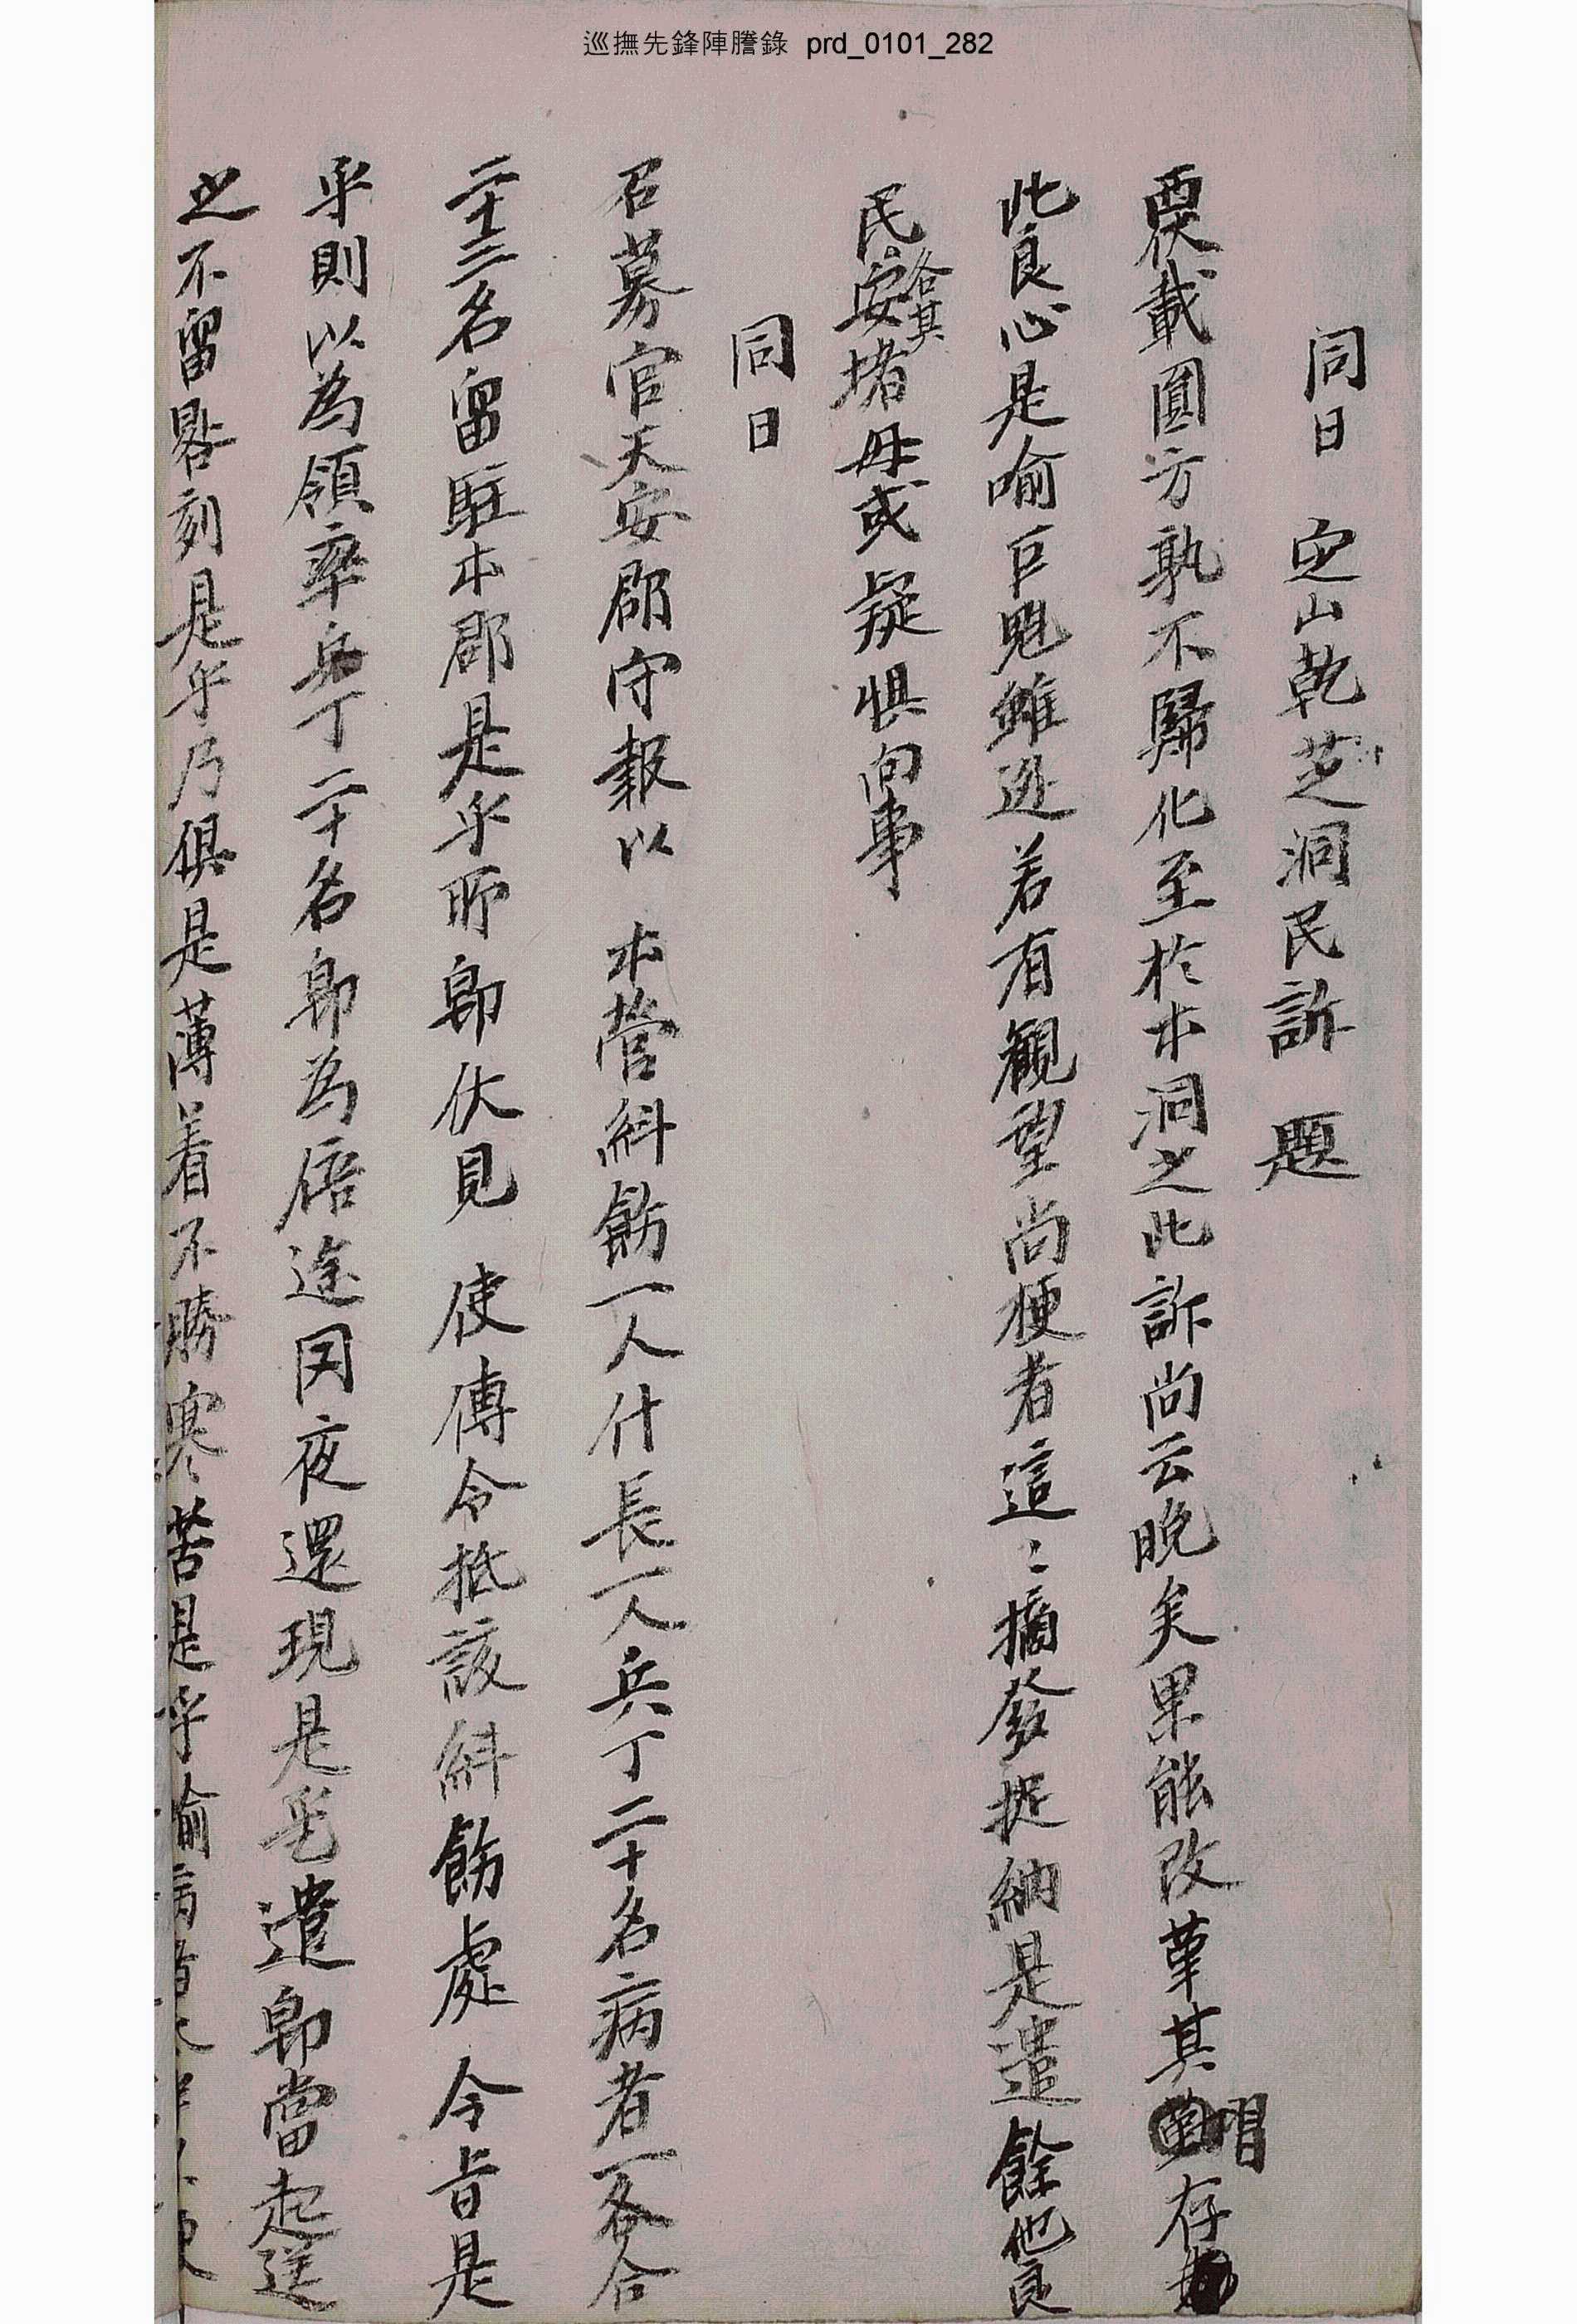 巡撫先鋒陣謄錄 prd_0101_282
同日 定山乾芝洞民訴 題
戴圓方孰不歸化至於本洞之此訴尚云晚矣果能改革其 存
唱
此良心是喻巨魁雖逃若有觀望尚梗者這這摘發捉納是遣餘他良
民各其安堵毋或疑惧向事
同日
召募官天安郡守報以 本營糾飭一人什長一人兵丁二十名病者一名合
二十三名留駐本郡是乎所卽伏見 使傳令抵該糾飭處 令旨是
乎則以為領率兵丁二十名卽為倍途罔夜還現是乎遣卽當起送
之不留晷刻是乎乃俱是薄着不勝寒苦是乎喻病